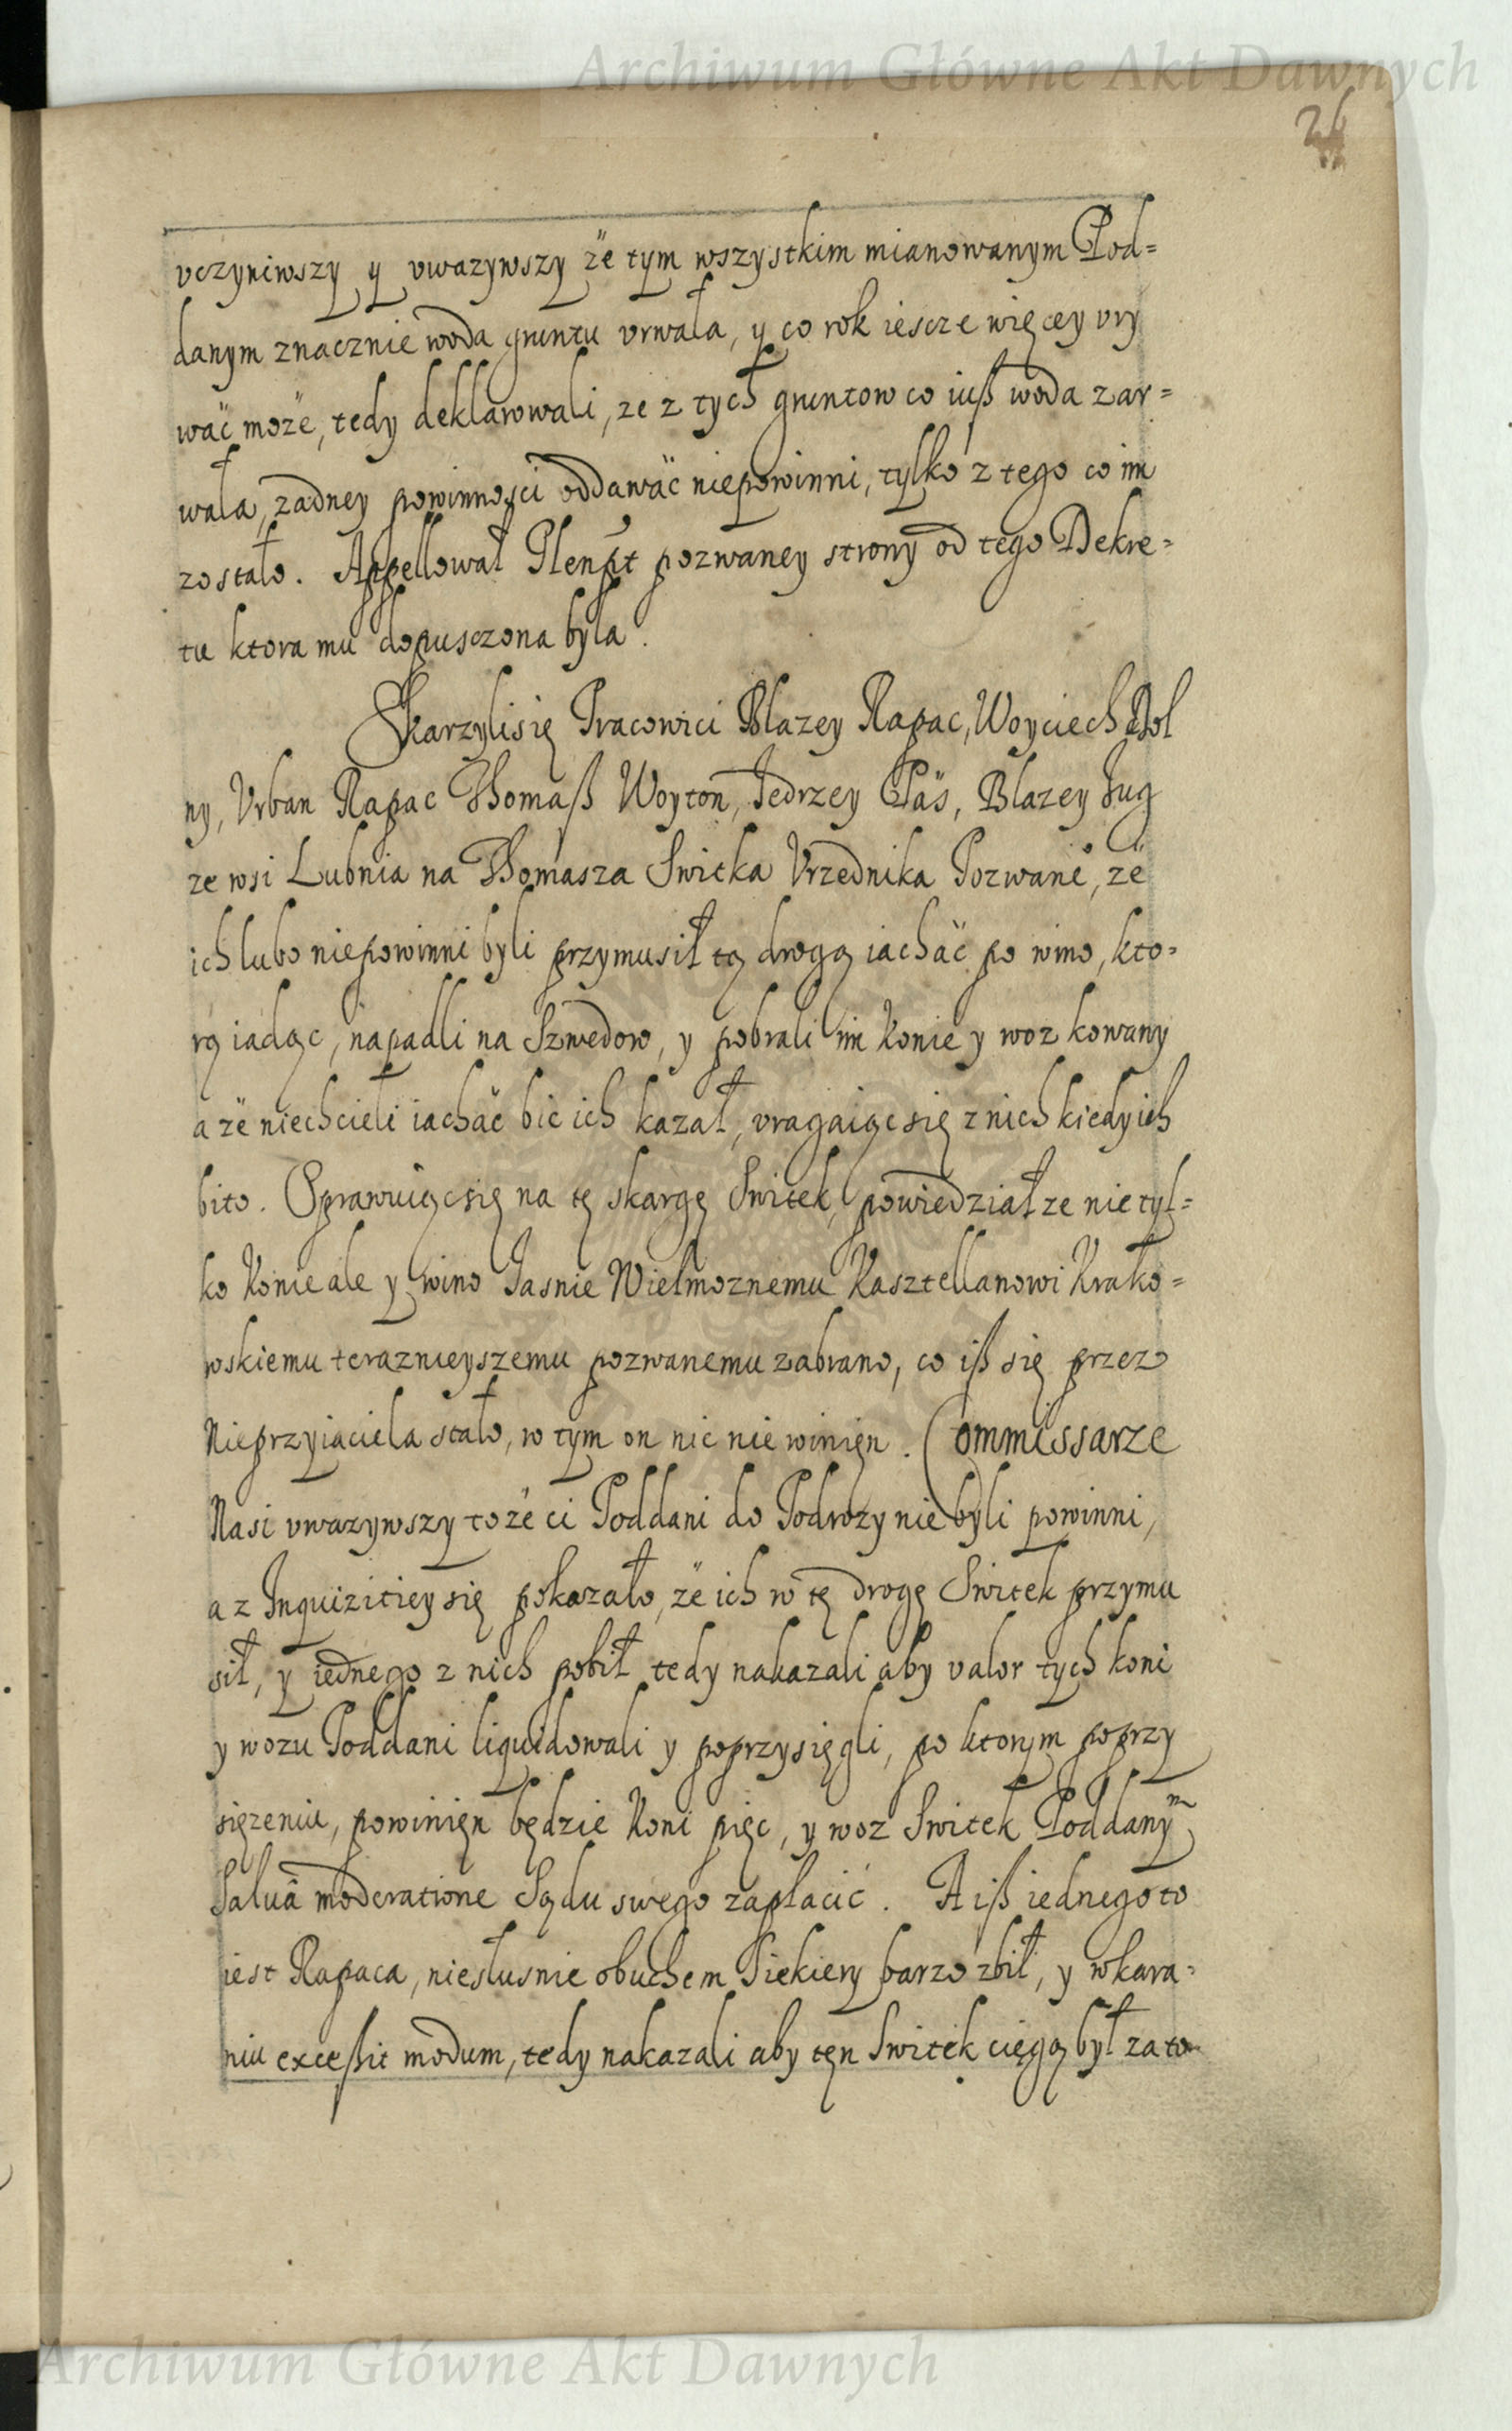 Archiwum Główne Akt Dawnych
26
vczyniwszy y vwazywszy że tym wszystkim mianowanym Pod=
danym znacznie woda gruntu vrwała, y co rok iescze więcey vry
wać może, tedy deklarowali, ze z tych gruntow co iuß woda zar=
wała, zadney powinnosci oddawać niepowinni, tylko z tego co im
zostało. Appellował Plenpt pozwaney strony od tego Dekre=
tu ktora mu dopusczona była.
Skarzylisię Pracowici Blazey Rapac, Woyciech Dol
ny, Vrban Rapac Thomaß Woyton, Jedrzey Pas, Blazey Jug
ze wsi Lubnia na Thomasza Switka Vrzednika Pozwane°, że
ich lubo niepowinni byli przymusił tą drogą iachać po wino, kto=
rą iadąc, napadli na Szwedow, y pobrali im konie y woz kowany
a że niechcieli iachać bic ich kazał, vragaiąc się z nich kiedy ich
bito. Sprawuiąc się na tę skargę Switek, powiedział ze nie tyl=
ko konie ale y wino Jasnie Wielmoznemu Kasztellanowi Krako=
wskiemu teraznieyszemu pozwanemu zabrano, co iß się przez
Nieprzyiaciela stało, w tym on nic nie winięn. Commissarze
Nasi vwazywszy to że ci Poddani do Podrozy nie byli powinni,
a z Inquizitiey się pokazało, że ich w tę drogę Switek przymu
sił, y iednego z nich pobił tedy nakazali aby valor tych koni
y wozu Poddani liquidowali y poprzysięgli, po ktorym poprzy
sięzeniu, powinięn będzie koni pięc, y woz Switek Poddanym
Saluâ moderatione Sądu swego zapłacić. A iß iednego to
iest Rapaca, niesłusnie obuchem Siekiery barzo zbił, y w kara=
niu exceßit modum, tedy nakazali aby tęn Switek cięgą był za to
Archiwum Główne Akt Dawnych